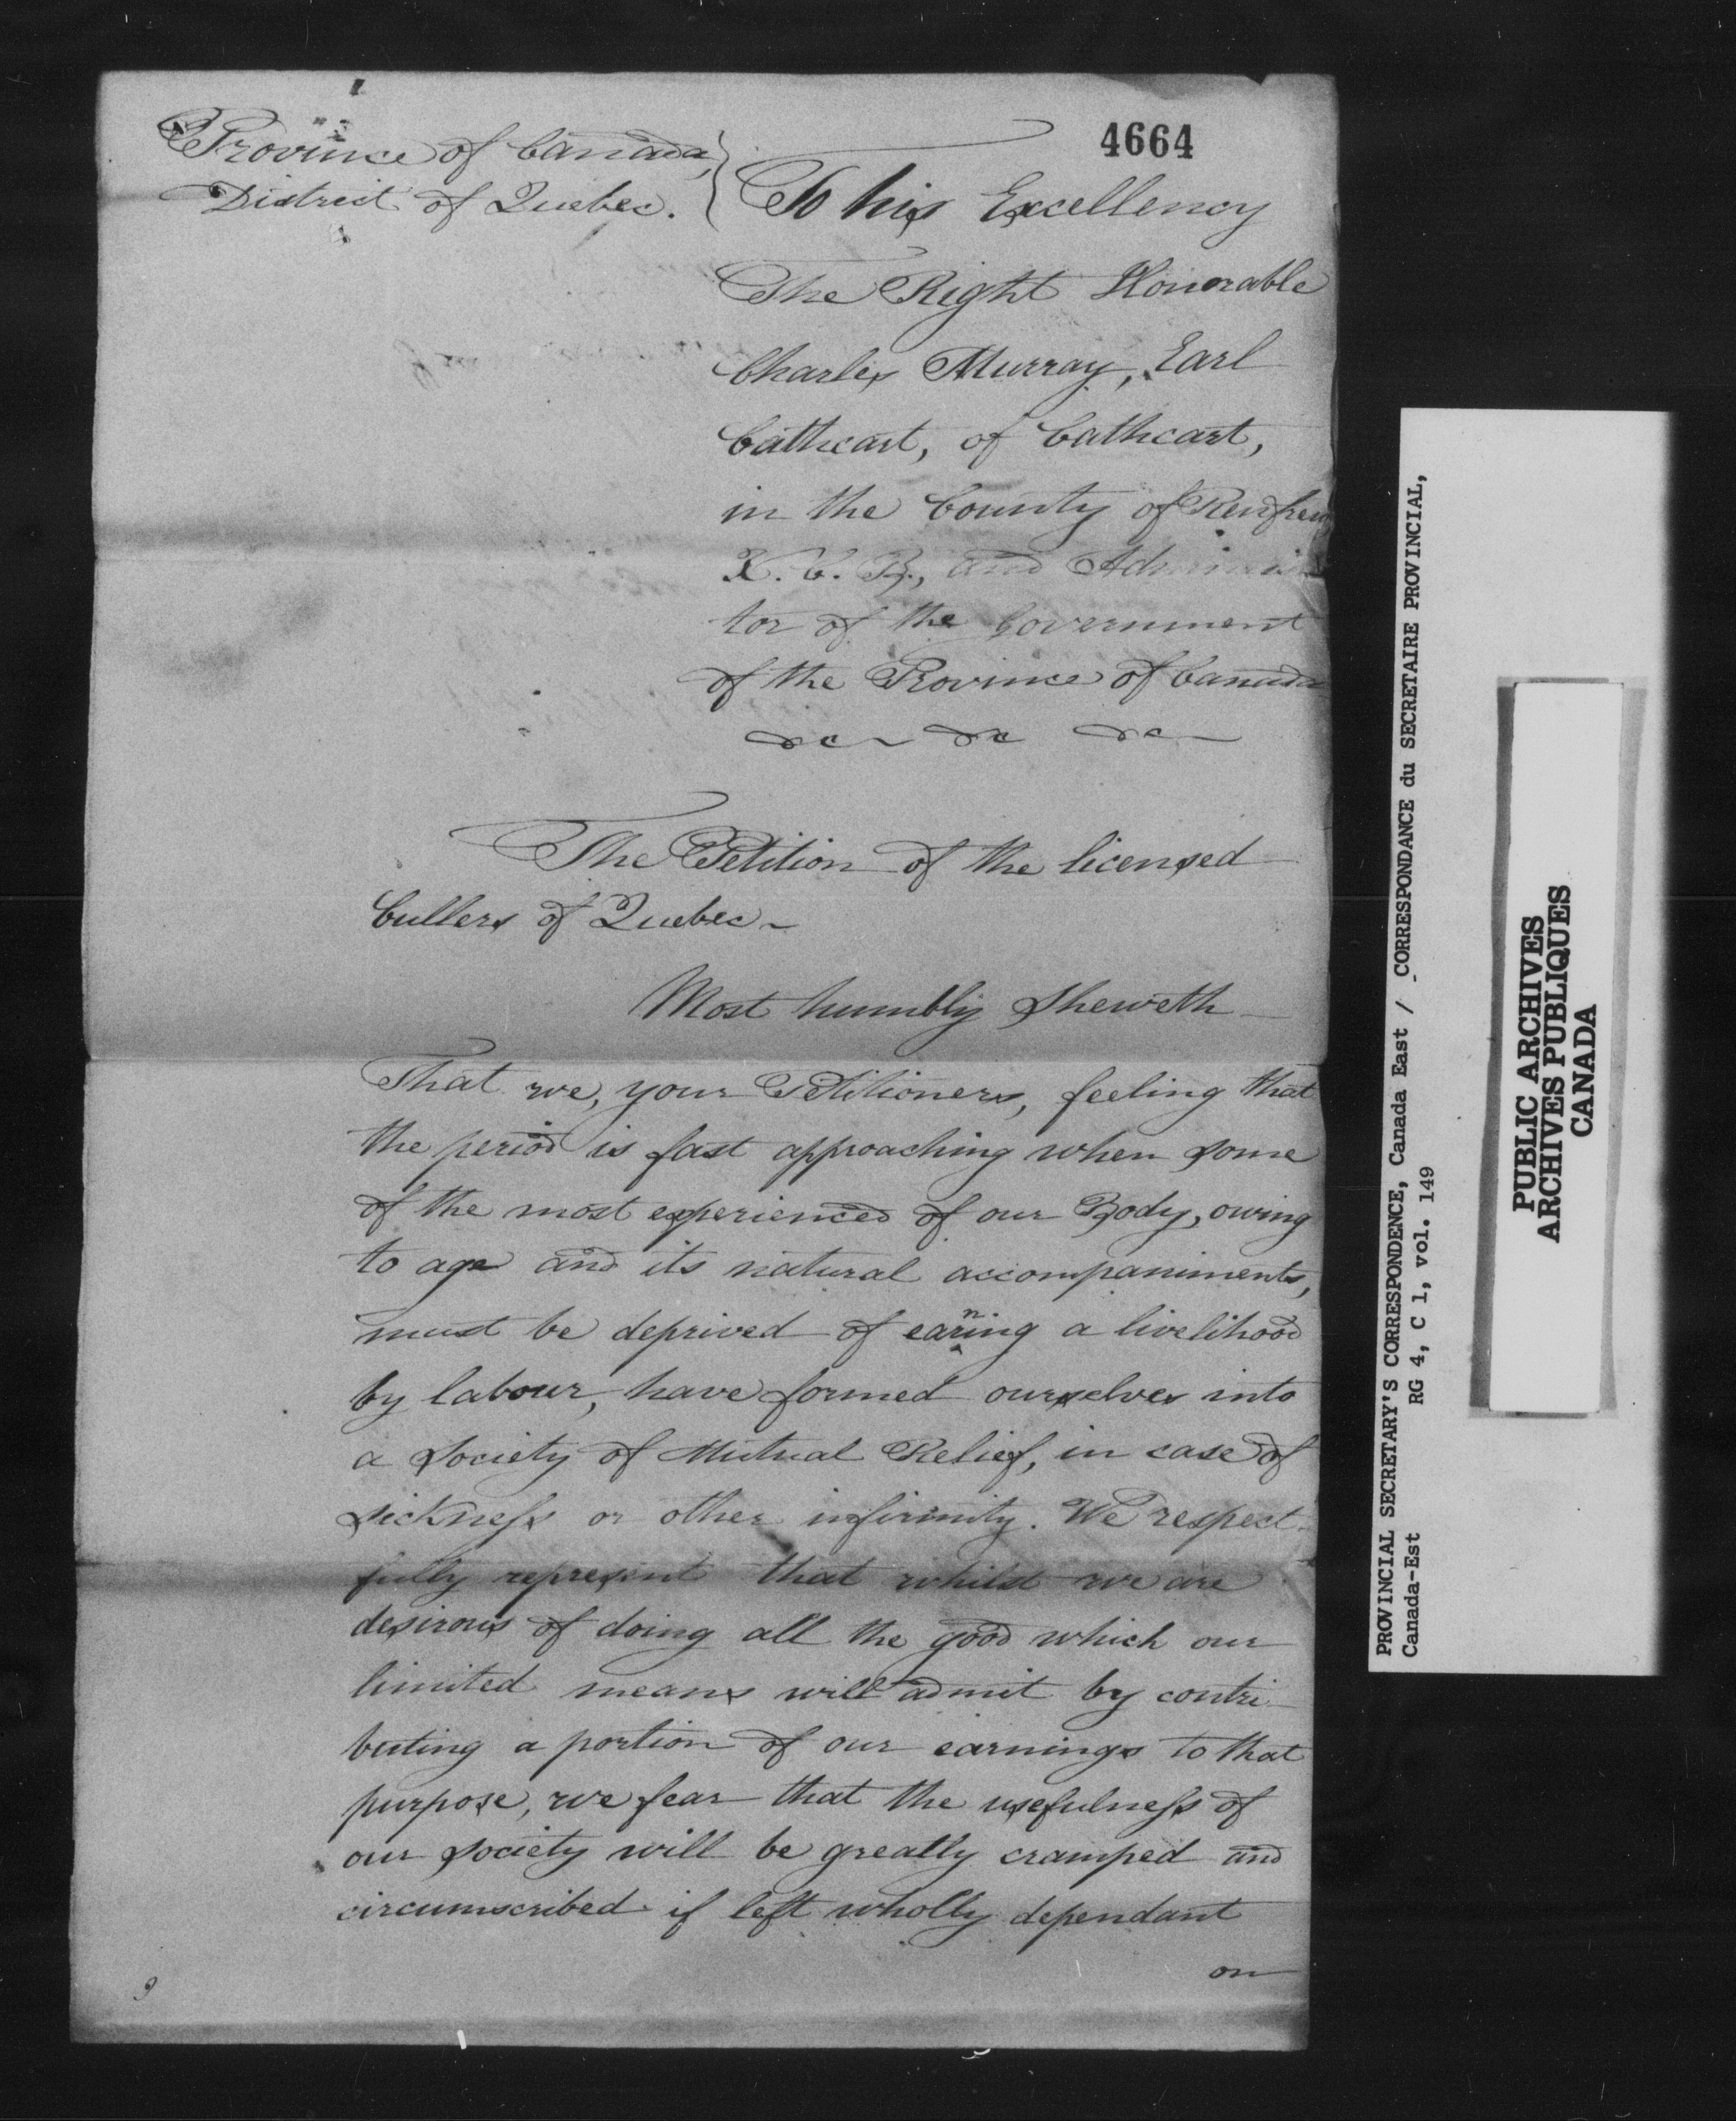 4664
Province of Canada,
District of Quebec.
To his Excellency
The Right Honorable
Charles Murray, Earl
Cathcart, of Cathcart,
in the County of Renfrew
K. C. B., and Adminis
tor of the Government
of the Province of Canada
&c &c &c
The Petition of the licensed
Cullers of Quebec
Most humbly Sheweth
That we, your Petitioners, feeling that
the period is fast approaching when some
of the most experienced of our Body, owing
to age and its natural accompaniments,
must be deprived of earning a livelihood
by labour, have formed ourselves into
a Society of Mutual Relief, in case of
sickness or other infirmity. We respect-
fully represent that whilst we are
desirous of doing all the good which our
limited means will admit by contri-
buting a portion of our earnings to that
purpose, we fear that the usefulness of
our society will be greatly cramped and
circumscribed if left wholly dependant
on
PROVINCIAL SECRETARY'S CORRESPONDENCE, Canada East / CORRESPONDANCE du SECRETAIRE PROVINCIAL,
Canada-Est RG 4, C 1, vol. 149
PUBLIC ARCHIVES
ARCHIVES PUBLIQUES
CANADA